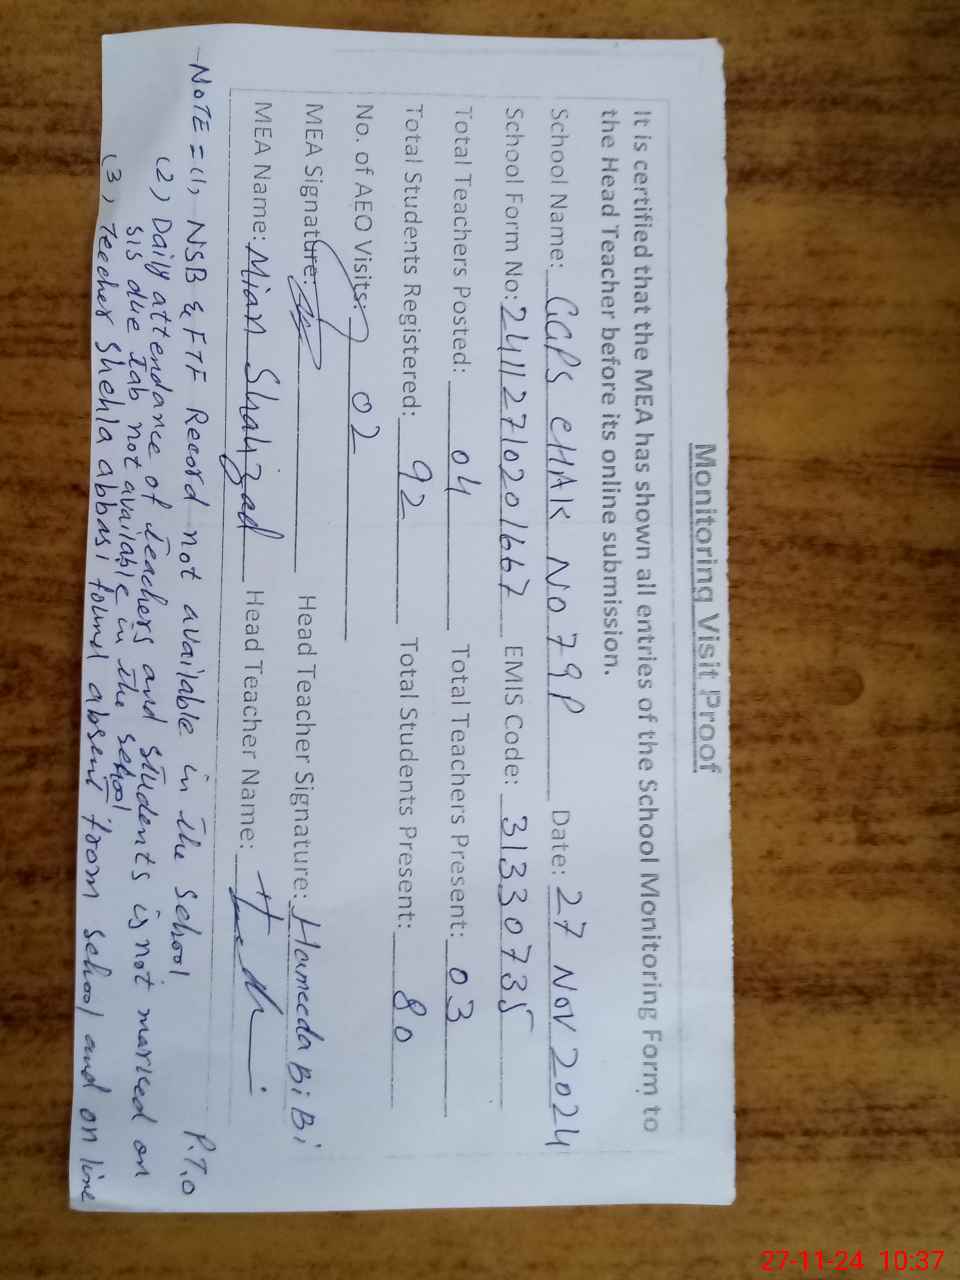 Monitoring Visit Proof
It is certified that the MEA has shown all entries of the School Monitoring Form to
the Head Teacher before its online submission.
School Name: GGPS CHAK NO 79P Date: 27 Nov 2024
School Form No: 24112710201667 EMIS Code: 31330735
Total Teachers Posted: 04 Total Teachers Present: 03
Total Students Registered: 92 Total Students Present: 80
No. of AEO Visits: 02
MEA Signature: Head Teacher Signature: Hameeda BiBi
MEA Name: Mian Shahzad Head Teacher Name:
P.T.O
NOTE = (1) NSB & FTF Record not available in the school
(2) Daily attendance of teachers and students is not marked on
SIS due tab not available in the school
(3) Teacher Shehla abbasi found absent from school and on line
27-11-24 10:37